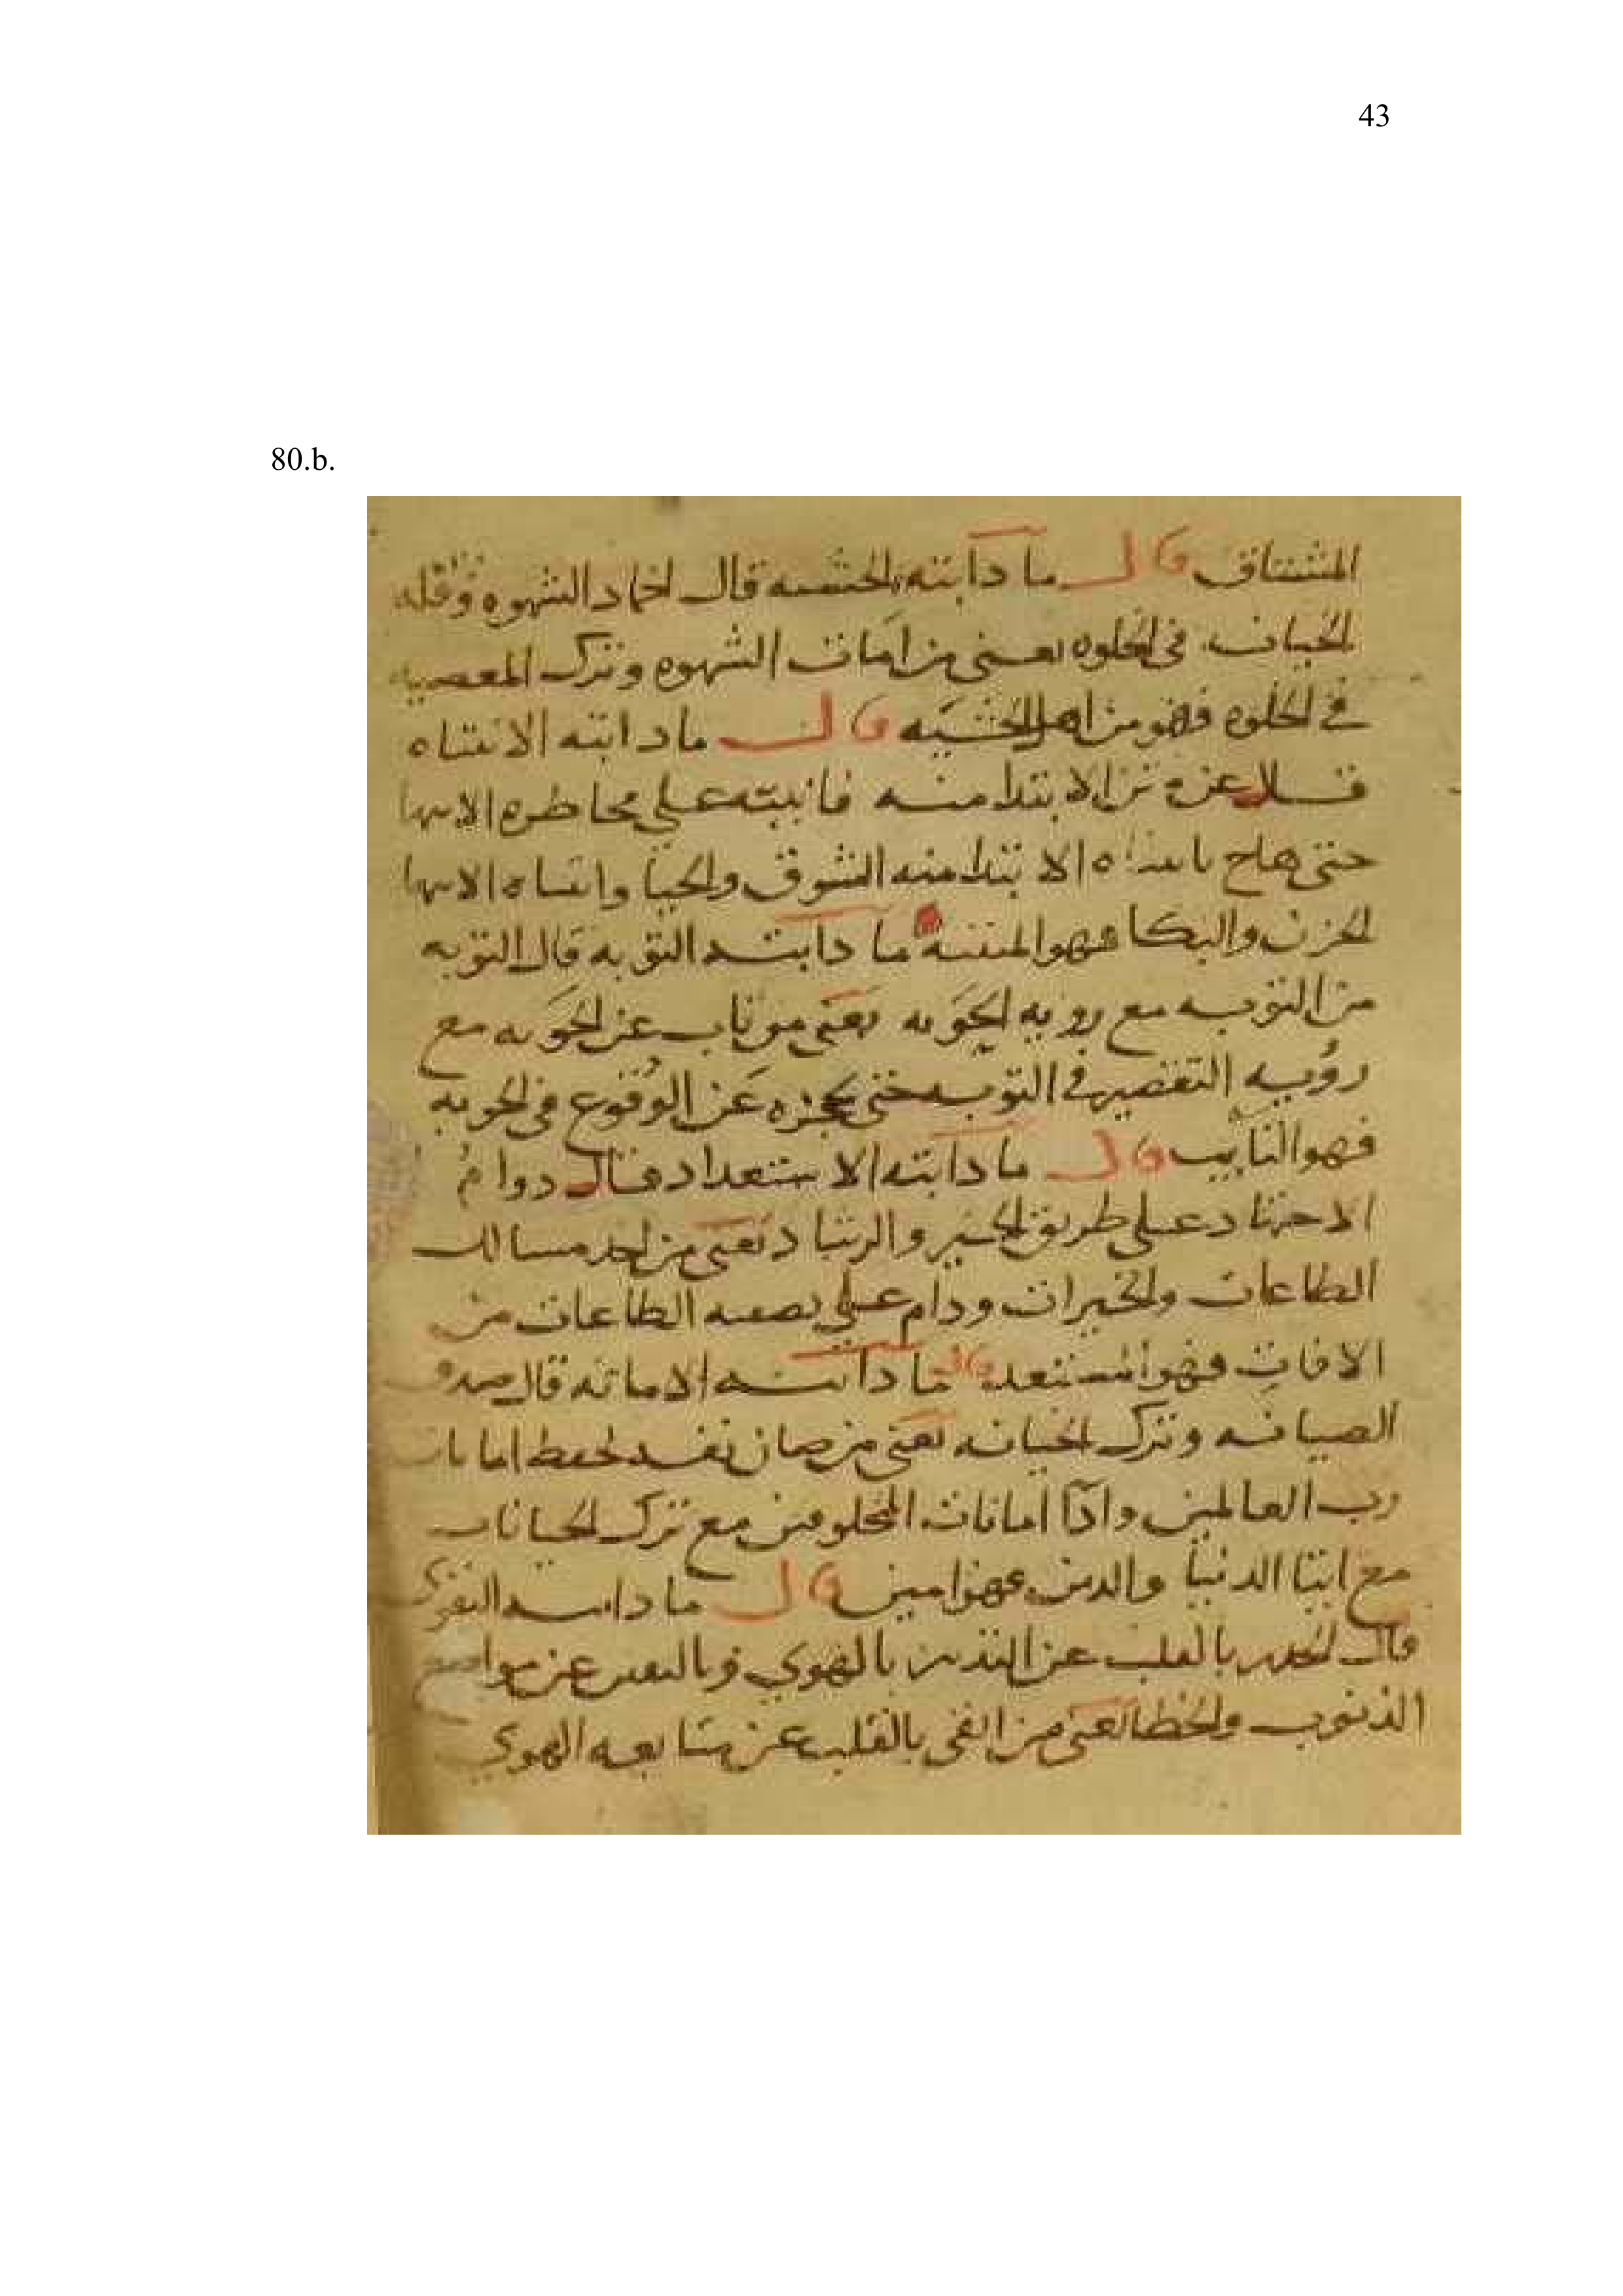 43
80.b.
المشتاق قال ما دآبته الخشيه قال اخماد الشهوه وقله
الخيانه في الخلوه يعني من امات الشهوه وترك المعصيه
في الخلوه فهو من اهل الخشيه قال ما دابته الانتباه
حتى هاج الابتدا منه الشوق والحيا وانتباه الانتها
الحزن والبكا فهو المنتبه ما دآبته التوبه قال التوبه
من التوبه مع رويه الحَوبه يعني من تاب عن الحَوبه مع
رؤيه التقصير في التوبه حتى يحجزه عَن الوقوع في الحوبه
فهو التايب قال ما دآبته الاستعداد قال دوام
الاجتهاد على طريق الخير والرشاد يعني من اخذ مسالك
الطاعات والخيرات ودام على تصفيه الطاعات من
الافات فهو المستعد قال ما دآبته الامانه قال صدق
الصيانه وترك الخيانه يعني من صان نفسه لحفظ امانات
رب العالمين وادّا امانات المخلوقين مع ترك الخيانات
مع ابنا الدنيا والدين فهو امين قال ما دابته التقوى
قال بالقلب عن بالهوي وبالنفس عن مواضع
الذنوب والخطا يعني من اتقى بالقلب عن متابعه الهوي